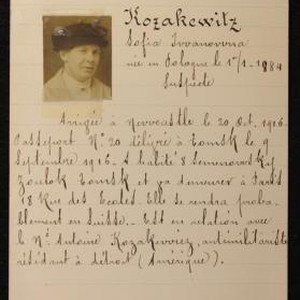 Kozakewitz
Sofia Ivvanovvna
née en Pologne le 1º/1-1884
Suspecte
Arrivée à Nevvcastle le 20 Oct. 1916.
Passeport Nº 20 délivré à Tomsk le 9
Septembre 1916. A habité 8 Semenovsky
Tomsk et va demeurer à Paris
18 Rue des Ecoles. Elle se rendra proba-
blement en Suisse. - Est en relation avec
le Né Antoine Kozakevviez, antimilitariste
résidant à détroit (Amérique)).